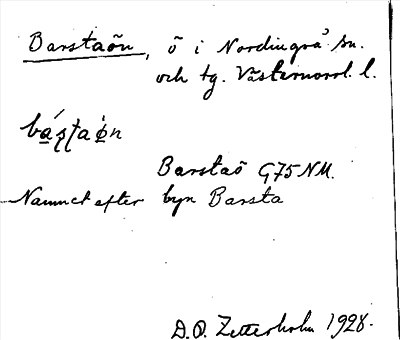 Barstaön, ö i Nordingrå sn.
och tg. Västernorrl. l.
bá̱ʂʈaø̱̀n
Barstaö G75NM.
Namnet efter byn Barsta
D.O. Zetterholm 1928.